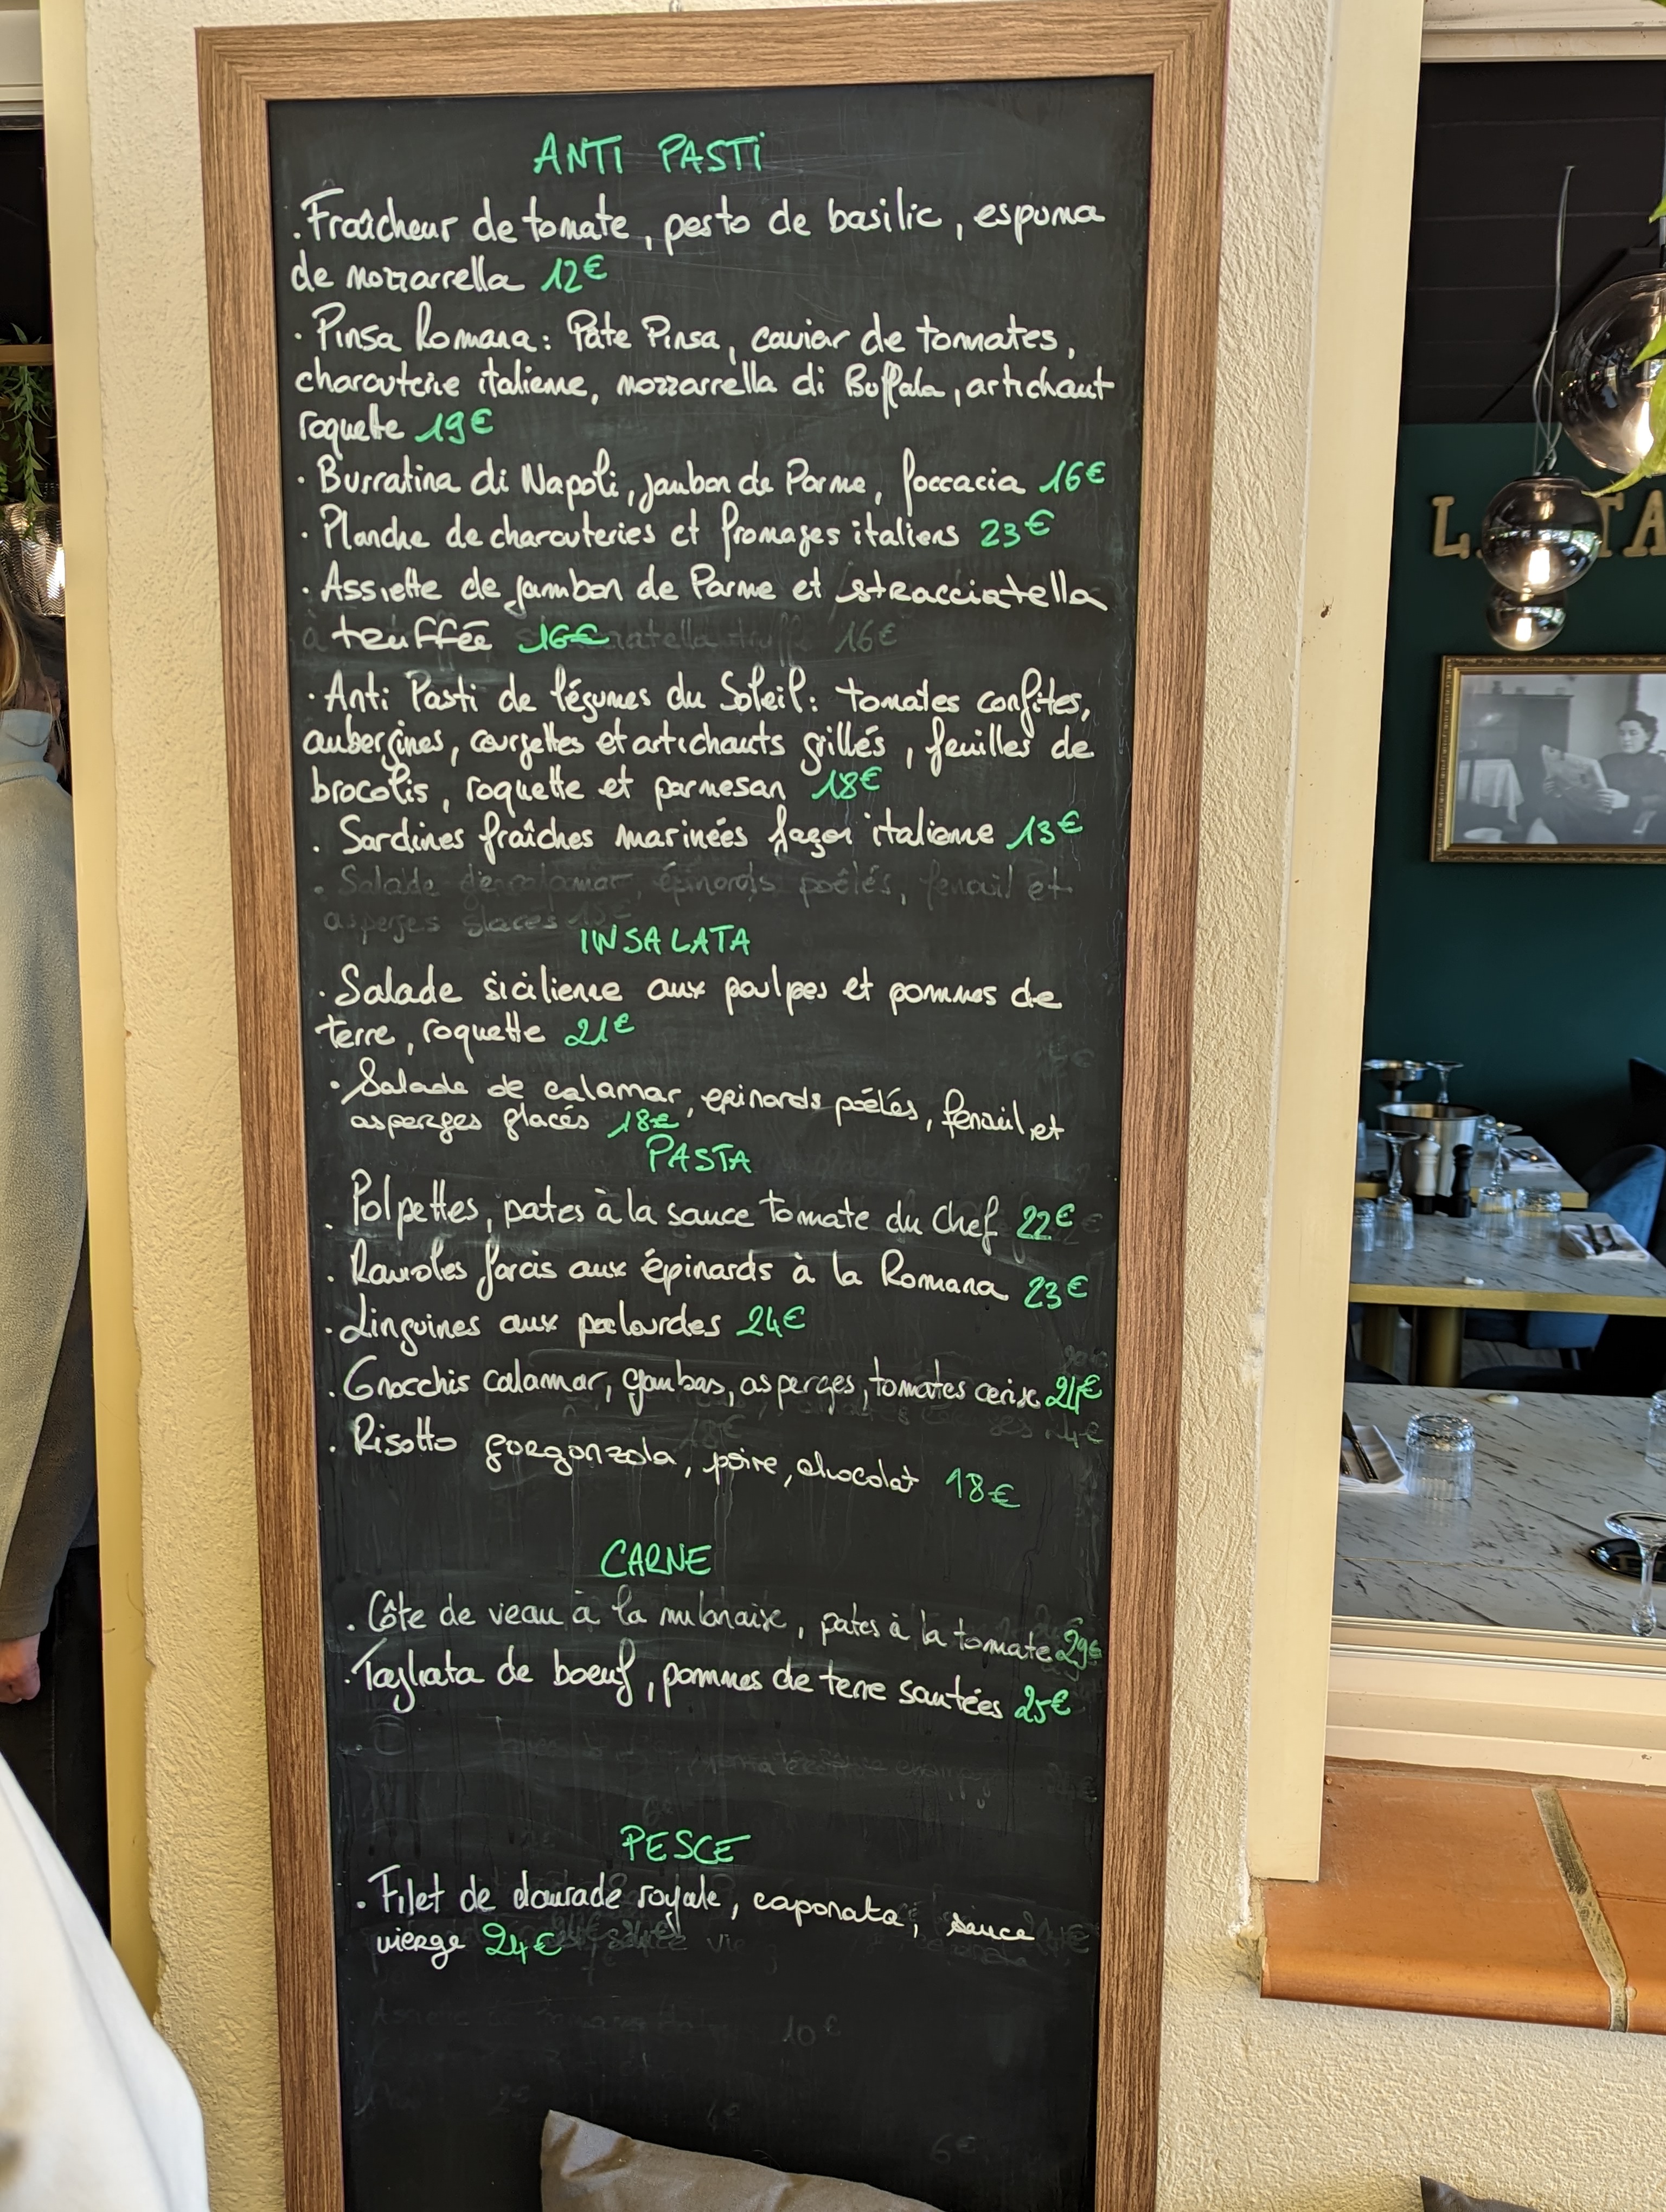 ANTI PASTi
. Fraîcheur de tomate, pesto de basilic, espuma
de mozzarrella 12€
· Pinsa Romana: Pâte Pinsa, caviar de tomates,
charcuterie italienne, mozzarrella di Buffala, artichaut
roquette 19€
· Burratina di Napoli, jambon de Parme, foccacia 16€
· Planche de charcuteries et fromages italiens 23€
· Assiette de jambon de Parme et stracciatella
truffée 16€
· Anti Pasti de légumes du Soleil: tomates confites,
aubergines, courgettes et artichauts grillés, feuilles de
brocolis, roquette et parmesan 18€
. Sardines fraîches marinées façon italienne 13€
. Salade de calamar, épinards poêlés, fenouil et
asperges glacés
INSALATA
. Salade sicilienne aux poulpes et pommes de
terre, roquette 21€
· Salade de calamar, epinards poélés, fenouil et
asperges glacés 18€
PASTA
. Polpettes, pates à la sauce tomate du Chef 22€
. Ravioles farcis aux épinards à la Romana 23€
. Linguines aux palourdes 24€
. Gnocchis calamar, gambas, asperges, tomates cerise 24€
. Risotto gorgonzola, poire, chocolat 18€
CARNE
. Côte de veau à la milanaise, pates à la tomate 29€
. Tagliata de boeuf, pommes de terre sautées 25€
PESCE
. Filet de daurade royale, caponata, sauce
vierge 24€